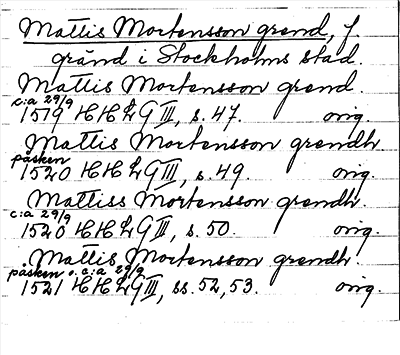 Mattis Mortensson grend, f.
gränd i Stockholms stad.
Mattis Mortensson grend
c:a 29/9
1519 HH2G III, s. 47. orig.
Mattis Mortensson grendh.
påsken
1520 HH2G III, s. 49. orig.
Mattiss Mortensson grendh.
c:a 29/9
1520 HH2G III, s. 50. orig.
Mattis Mortensson grendh.
påsken o. c:a 29/9
1521 HH2G III, ss. 52, 53. orig.